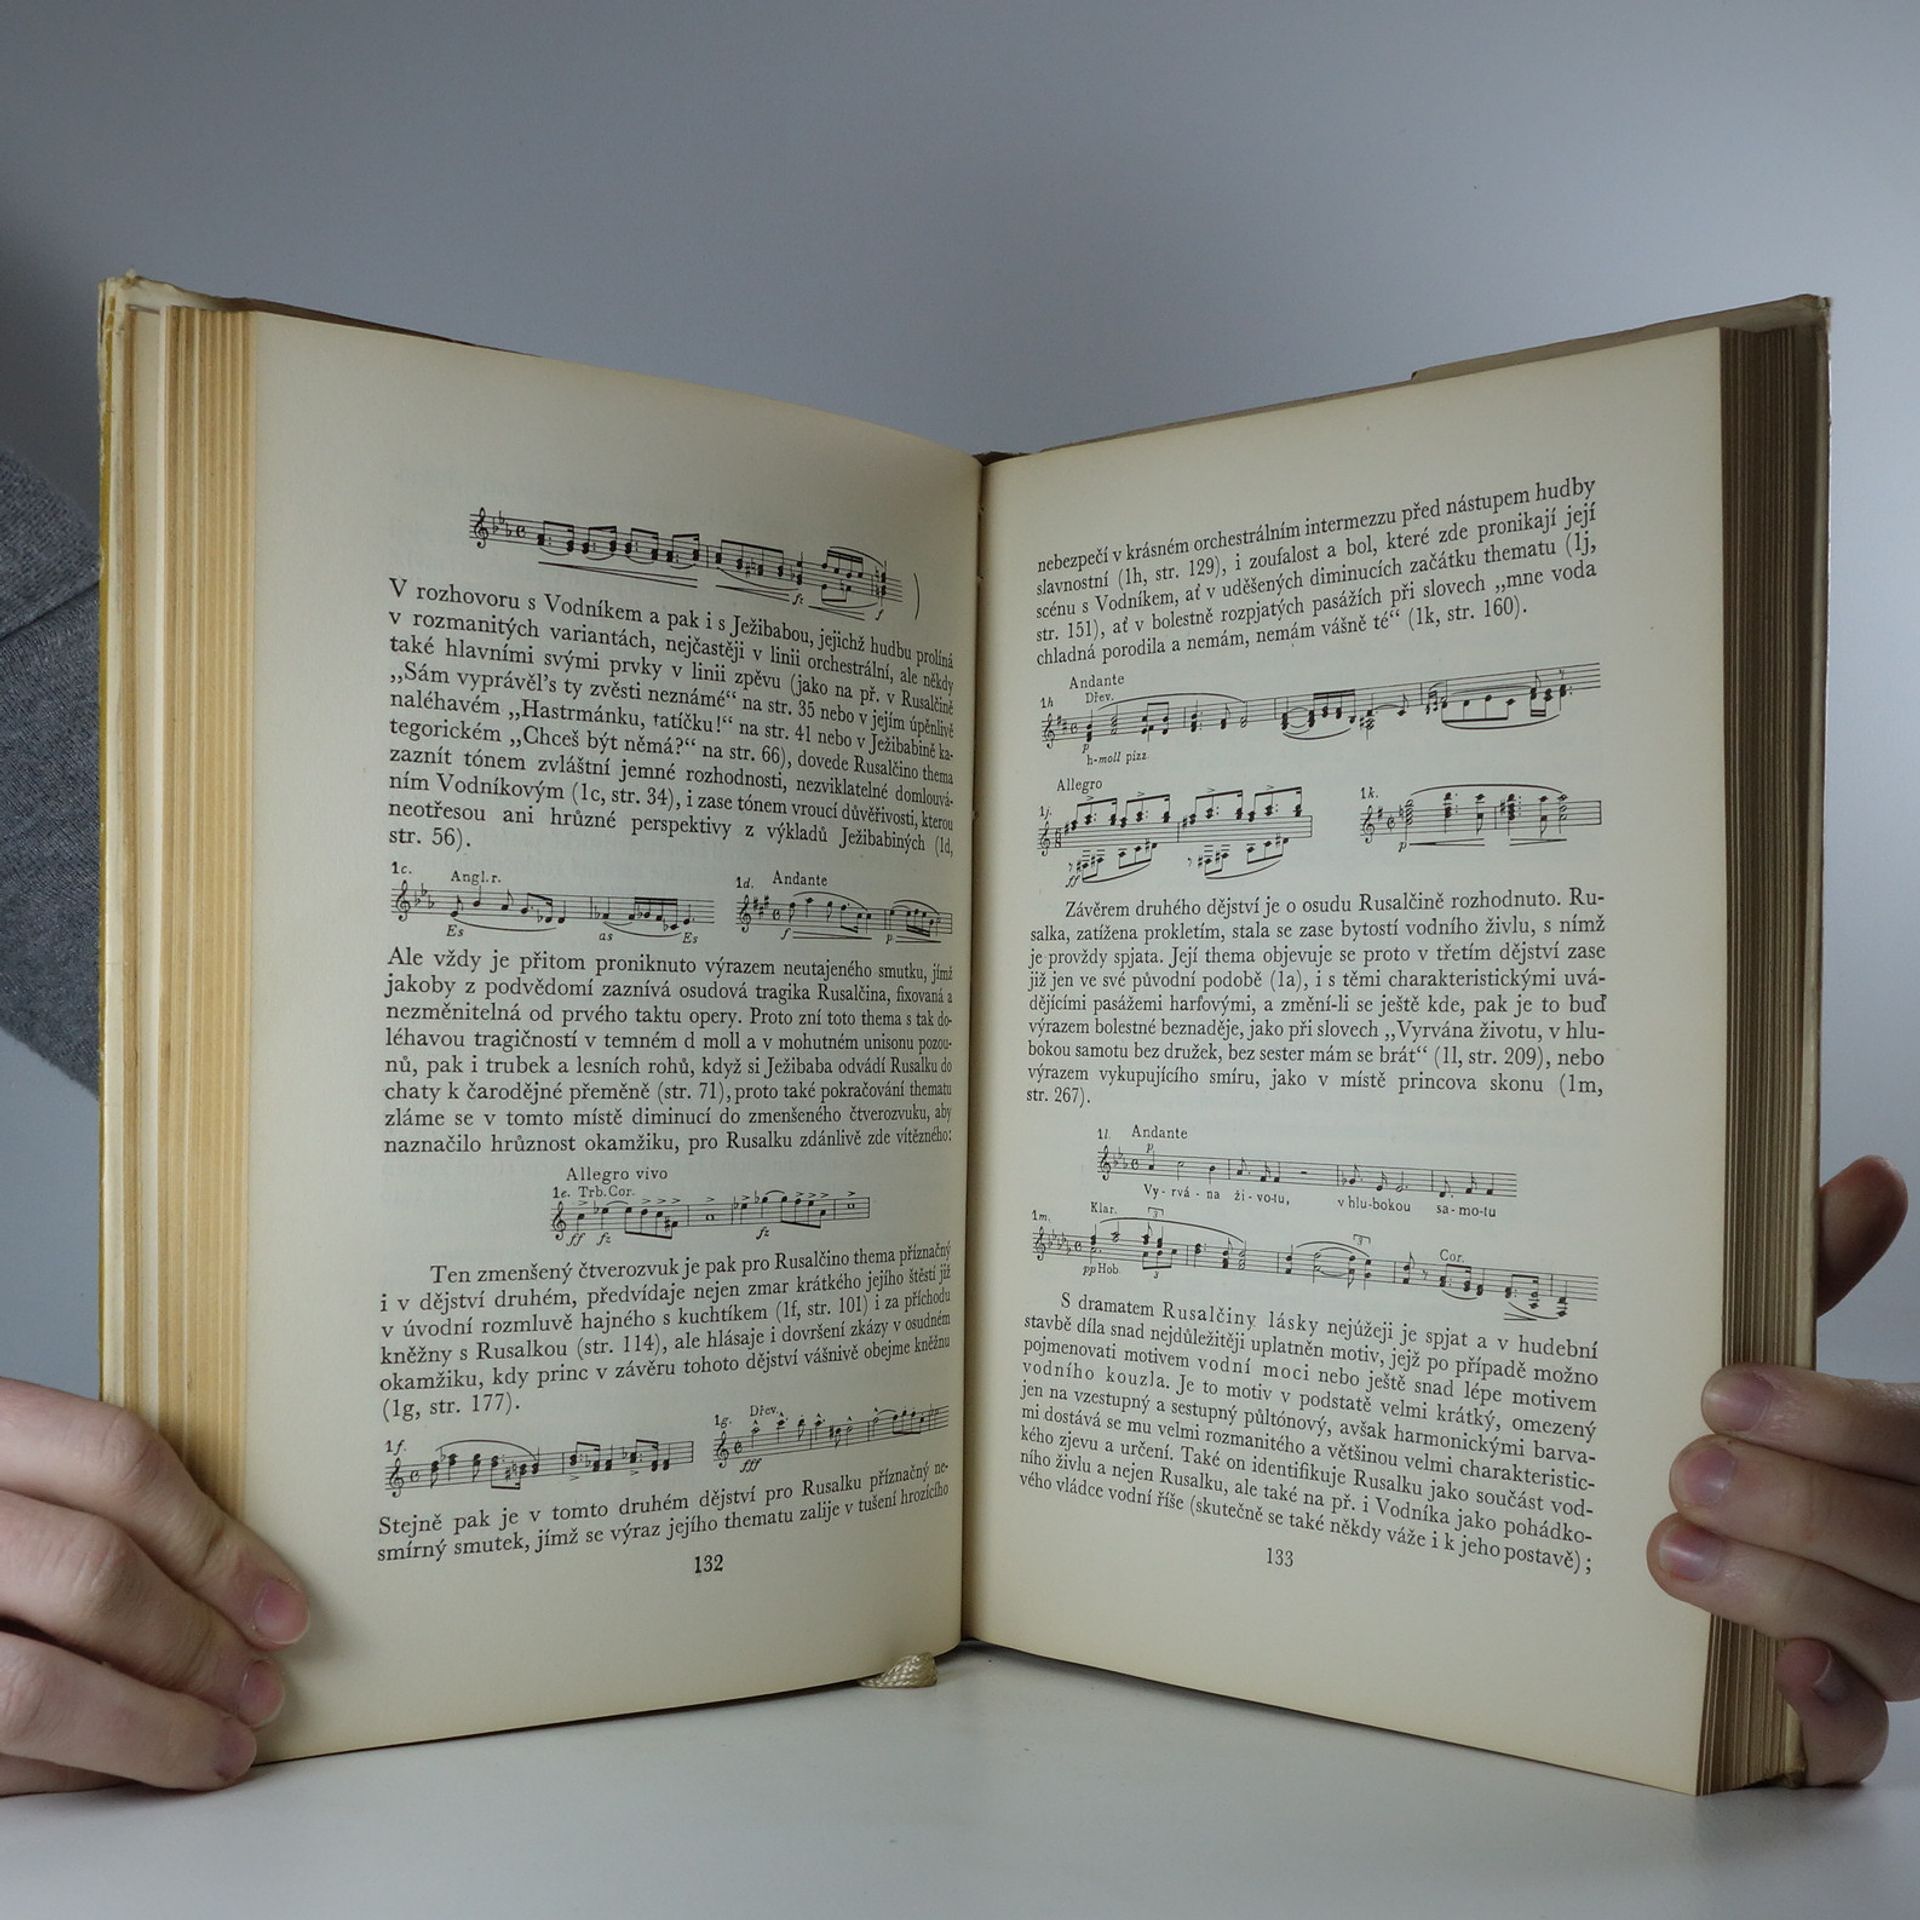 V rozhovoru s Vodníkem a pak i s Ježibabou, jejichž hudbu prolíná
v rozmanitých variantách, nejčastěji v linii orchestrální, ale někdy
také hlavními svými prvky v linii zpěvu (jako na př. v Rusalčině
„Sám vyprávěl's ty zvěsti neznámé“ na str. 35 nebo v jejím úpěnlivě
naléhavém „Hastrmánku, tatíčku!“ na str. 41 nebo v Ježibabině ka-
tegorickém „Chceš být němá?“ na str. 66), dovede Rusalčino thema
zaznít tónem zvláštní jemné rozhodnosti, nezviklatelné domlouvá-
ním Vodníkovým (1c, str. 34), i zase tónem vroucí důvěřivosti, kterou
neotřesou ani hrůzné perspektivy z výkladů Ježibabiných (1d,
str. 56).
1c. Angl. r.
Es as Es
1d. Andante
f p
Ale vždy je přitom proniknuto výrazem neutajeného smutku, jímž
jakoby z podvědomí zaznívá osudová tragika Rusalčina, fixovaná a
nezměnitelná od prvého taktu opery. Proto zní toto thema s tak do-
léhavou tragičností v temném d moll a v mohutném unisonu pozou-
nů, pak i trubek a lesních rohů, když si Ježibaba odvádí Rusalku do
chaty k čarodějné přeměně (str. 71), proto také pokračování thematu
zláme se v tomto místě diminucí do zmenšeného čtverozvuku, aby
naznačilo hrůznost okamžiku, pro Rusalku zdánlivě zde vítězného:
Allegro vivo
1e. Trb. Cor.
ff fz fz
Ten zmenšený čtverozvuk je pak pro Rusalčino thema příznačný
i v dějství druhém, předvídaje nejen zmar krátkého jejího štěstí již
v úvodní rozmluvě hajného s kuchtíkem (1f, str. 101) i za příchodu
kněžny s Rusalkou (str. 114), ale hlásaje i dovršení zkázy v osudném
okamžiku, kdy princ v závěru tohoto dějství vášnivě obejme kněžnu
(1g, str. 177).
1f.
1g. Dřev.
fff
Stejně pak je v tomto druhém dějství pro Rusalku příznačný ne-
smírný smutek, jímž se výraz jejího thematu zalije v tušení hrozícího
132
nebezpečí v krásném orchestrálním intermezzu před nástupem hudby
slavnostní (1h, str. 129), i zoufalost a bol, které zde pronikají její
scénu s Vodníkem, ať v uděšených diminucích začátku thematu (1j,
str. 151), ať v bolestně rozpjatých pasážích při slovech „mne voda
chladná porodila a nemám, nemám vášně té“ (1k, str. 160).
Andante
1h Dřev.
p
h-moll pizz.
Allegro
1j.
ff
1k.
p
Závěrem druhého dějství je o osudu Rusalčině rozhodnuto. Ru-
salka, zatížena prokletím, stala se zase bytostí vodního živlu, s nímž
je provždy spjata. Její thema objevuje se proto v třetím dějství zase
již jen ve své původní podobě (1a), i s těmi charakteristickými uvá-
dějícími pasážemi harfovými, a změní-li se ještě kde, pak je to buď
výrazem bolestné beznaděje, jako při slovech „Vyrvána životu, v hlu-
bokou samotu bez družek, bez sester mám se brát“ (1l, str. 209), nebo
výrazem vykupujícího smíru, jako v místě princova skonu (1m,
str. 267).
1l. Andante
p
Vy-rvá-na ži-vo-tu, v hlu-bokou sa-mo-tu
1m. Klar.
pp Hob.
Cor.
S dramatem Rusalčiny lásky nejúžeji je spjat a v hudební
stavbě díla snad nejdůležitěji uplatněn motiv, jejž po případě možno
pojmenovati motivem vodní moci nebo ještě snad lépe motivem
vodního kouzla. Je to motiv v podstatě velmi krátký, omezený
jen na vzestupný a sestupný půltónový, avšak harmonickými barva-
mi dostává se mu velmi rozmanitého a většinou velmi charakteristic-
kého zjevu a určení. Také on identifikuje Rusalku jako součást vod-
ního živlu a nejen Rusalku, ale také na př. i Vodníka jako pohádko-
vého vládce vodní říše (skutečně se také někdy váže i k jeho postavě);
133